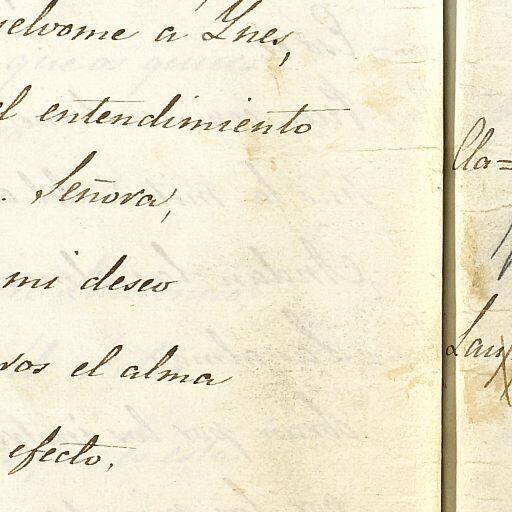 selvome a Ynes,
el entendimiento
. Señora,
mi deseo
vos el alma
efecto.
Cla=
Lau